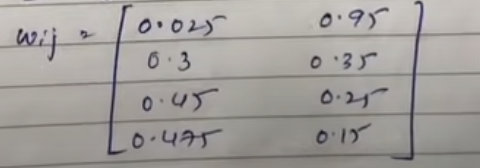 wij = [ 0.025 0.95
0.3 0.35
0.45 0.25
0.475 0.15 ]